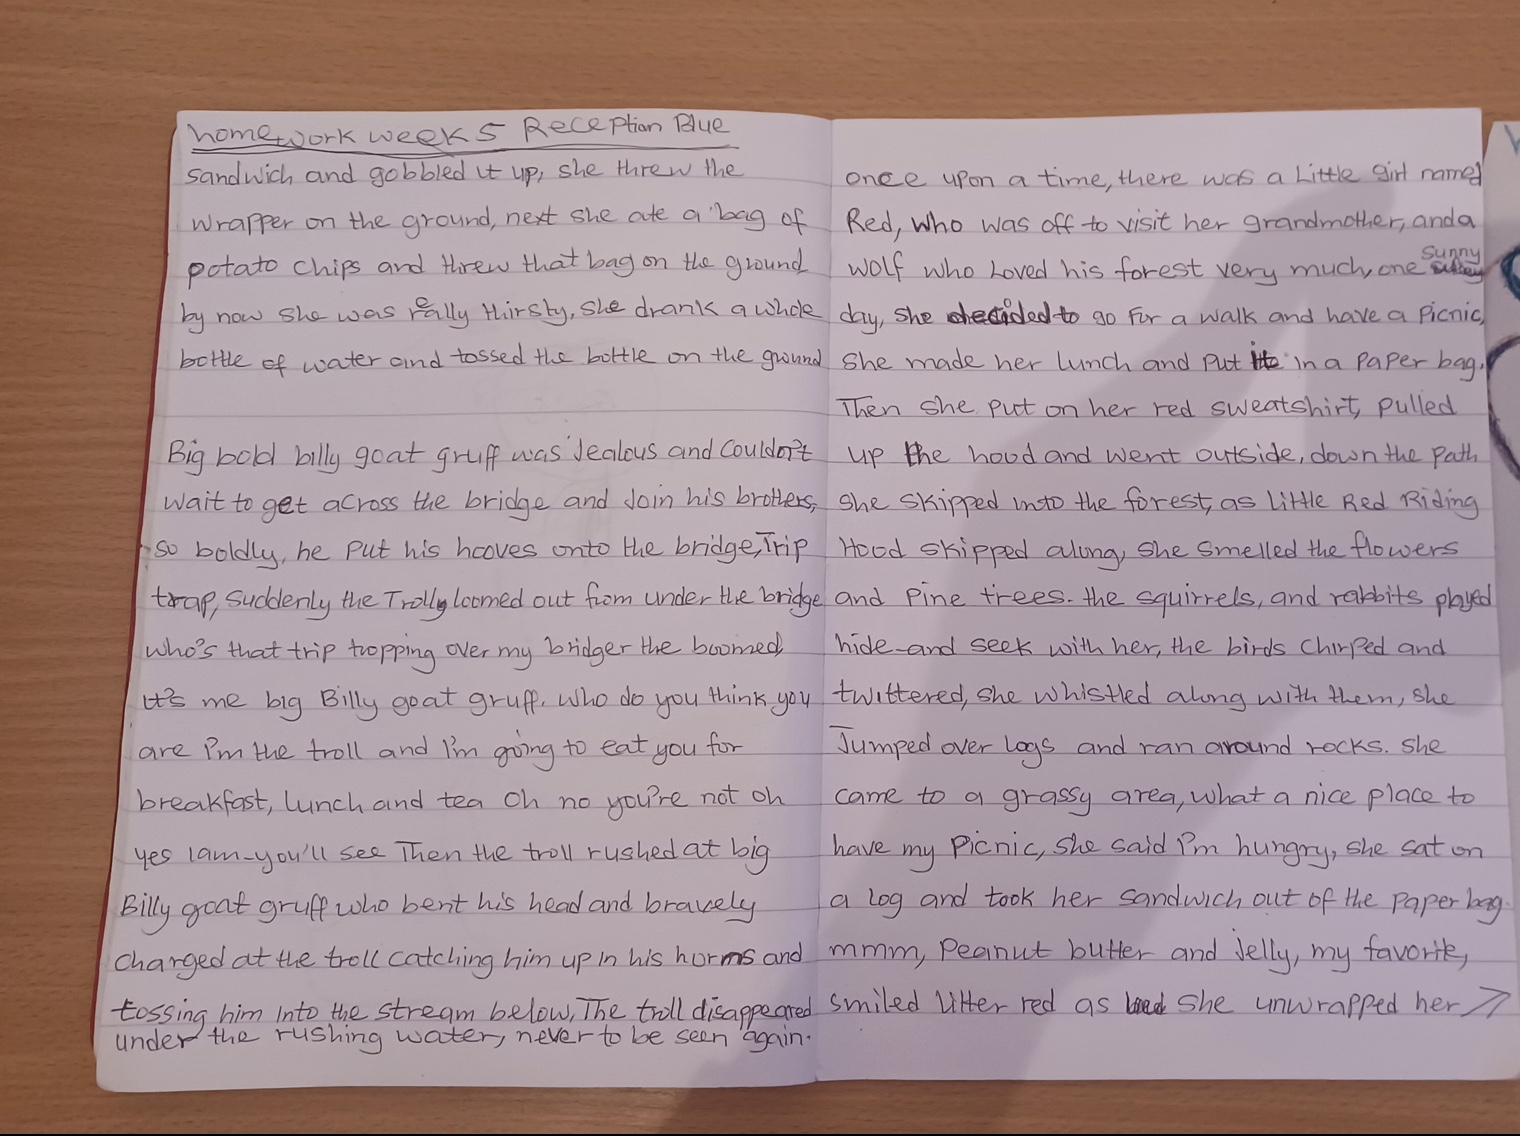 homework week 5 Reception Blue
sandwich and gobbled it up, she threw the
wrapper on the ground, next she ate a bag of
potato chips and threw that bag on the ground
by now she was really thirsty, she drank a whole
bottle of water and tossed the bottle on the ground
Big bold billy goat gruff was Jealous and Couldn't
wait to get across the bridge and Join his brothers,
so boldly, he put his hooves onto the bridge, Trip
trap, Suddenly the Trolly loomed out from under the bridge
who's that trip tropping over my bridger the boomed,
it's me big Billy goat gruff. who do you think you
are i'm the troll and I'm going to eat you for
breakfast, lunch and tea Oh no you're not oh
yes I am-you'll see Then the troll rushed at big
Billy goat gruff who bent his head and bravely
charged at the troll catching him up in his horns and
tossing him into the stream below, The troll disappeared
under the rushing water, never to be seen again.
once upon a time, there was a Little girl named
Red, who was off to visit her grandmother, and a
wolf who Loved his forest very much, one sunny
day, she decided to go For a walk and have a Picnic,
she made her lunch and put it in a paper bag.
Then she put on her red sweatshirt, pulled
up the hood and went outside, down the path
she skipped into the forest, as little Red Riding
Hood skipped along, she smelled the flowers
and Pine trees. the squirrels, and rabbits played
hide-and seek with her, the birds chirped and
twittered, she whistled along with them, she
Jumped over logs and ran around rocks. she
came to a grassy area, what a nice place to
have my picnic, she said i'm hungry, she sat on
a log and took her sandwich out of the paper bag.
mmm, Peanut butter and Jelly, my favorite,
smiled litter red as she unwrapped her